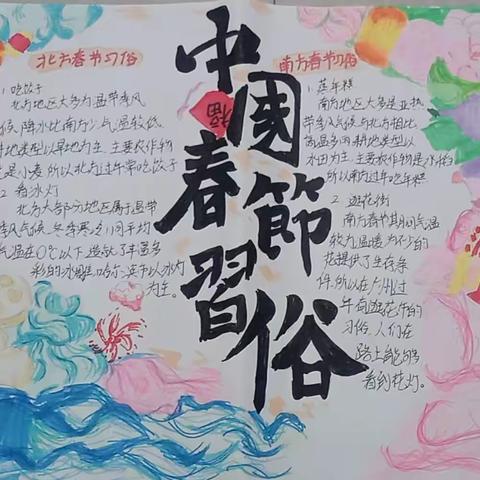 中國春節習俗
福
北方春节习俗
1. 吃饺子
北方地区大多为温带季风
候,降水比南方少气温较低
耕地类型以旱地为主,主要农作物
是小麦所以北方过年常吃饺子
2 看冰灯
北方大部分地区属于温带
季风气候,冬季寒冷1月平均
气温在0℃以下造就了丰富多
彩的冰雕,哈尔滨市以冰灯
为主。
南方春节习俗
1. 蒸年糕
南方地区大多是亚热
带季风气候,与北方相比
高温多雨耕地类型以
水田为主,主要农作物是水稻
所以南方过年吃年糕
2 逛花街
南方春节其间气温
较为温暖为不少的
花提供了生存条
件,所以在广州过
年有逛花街的
习俗,人们在
路上能够
看到花灯。